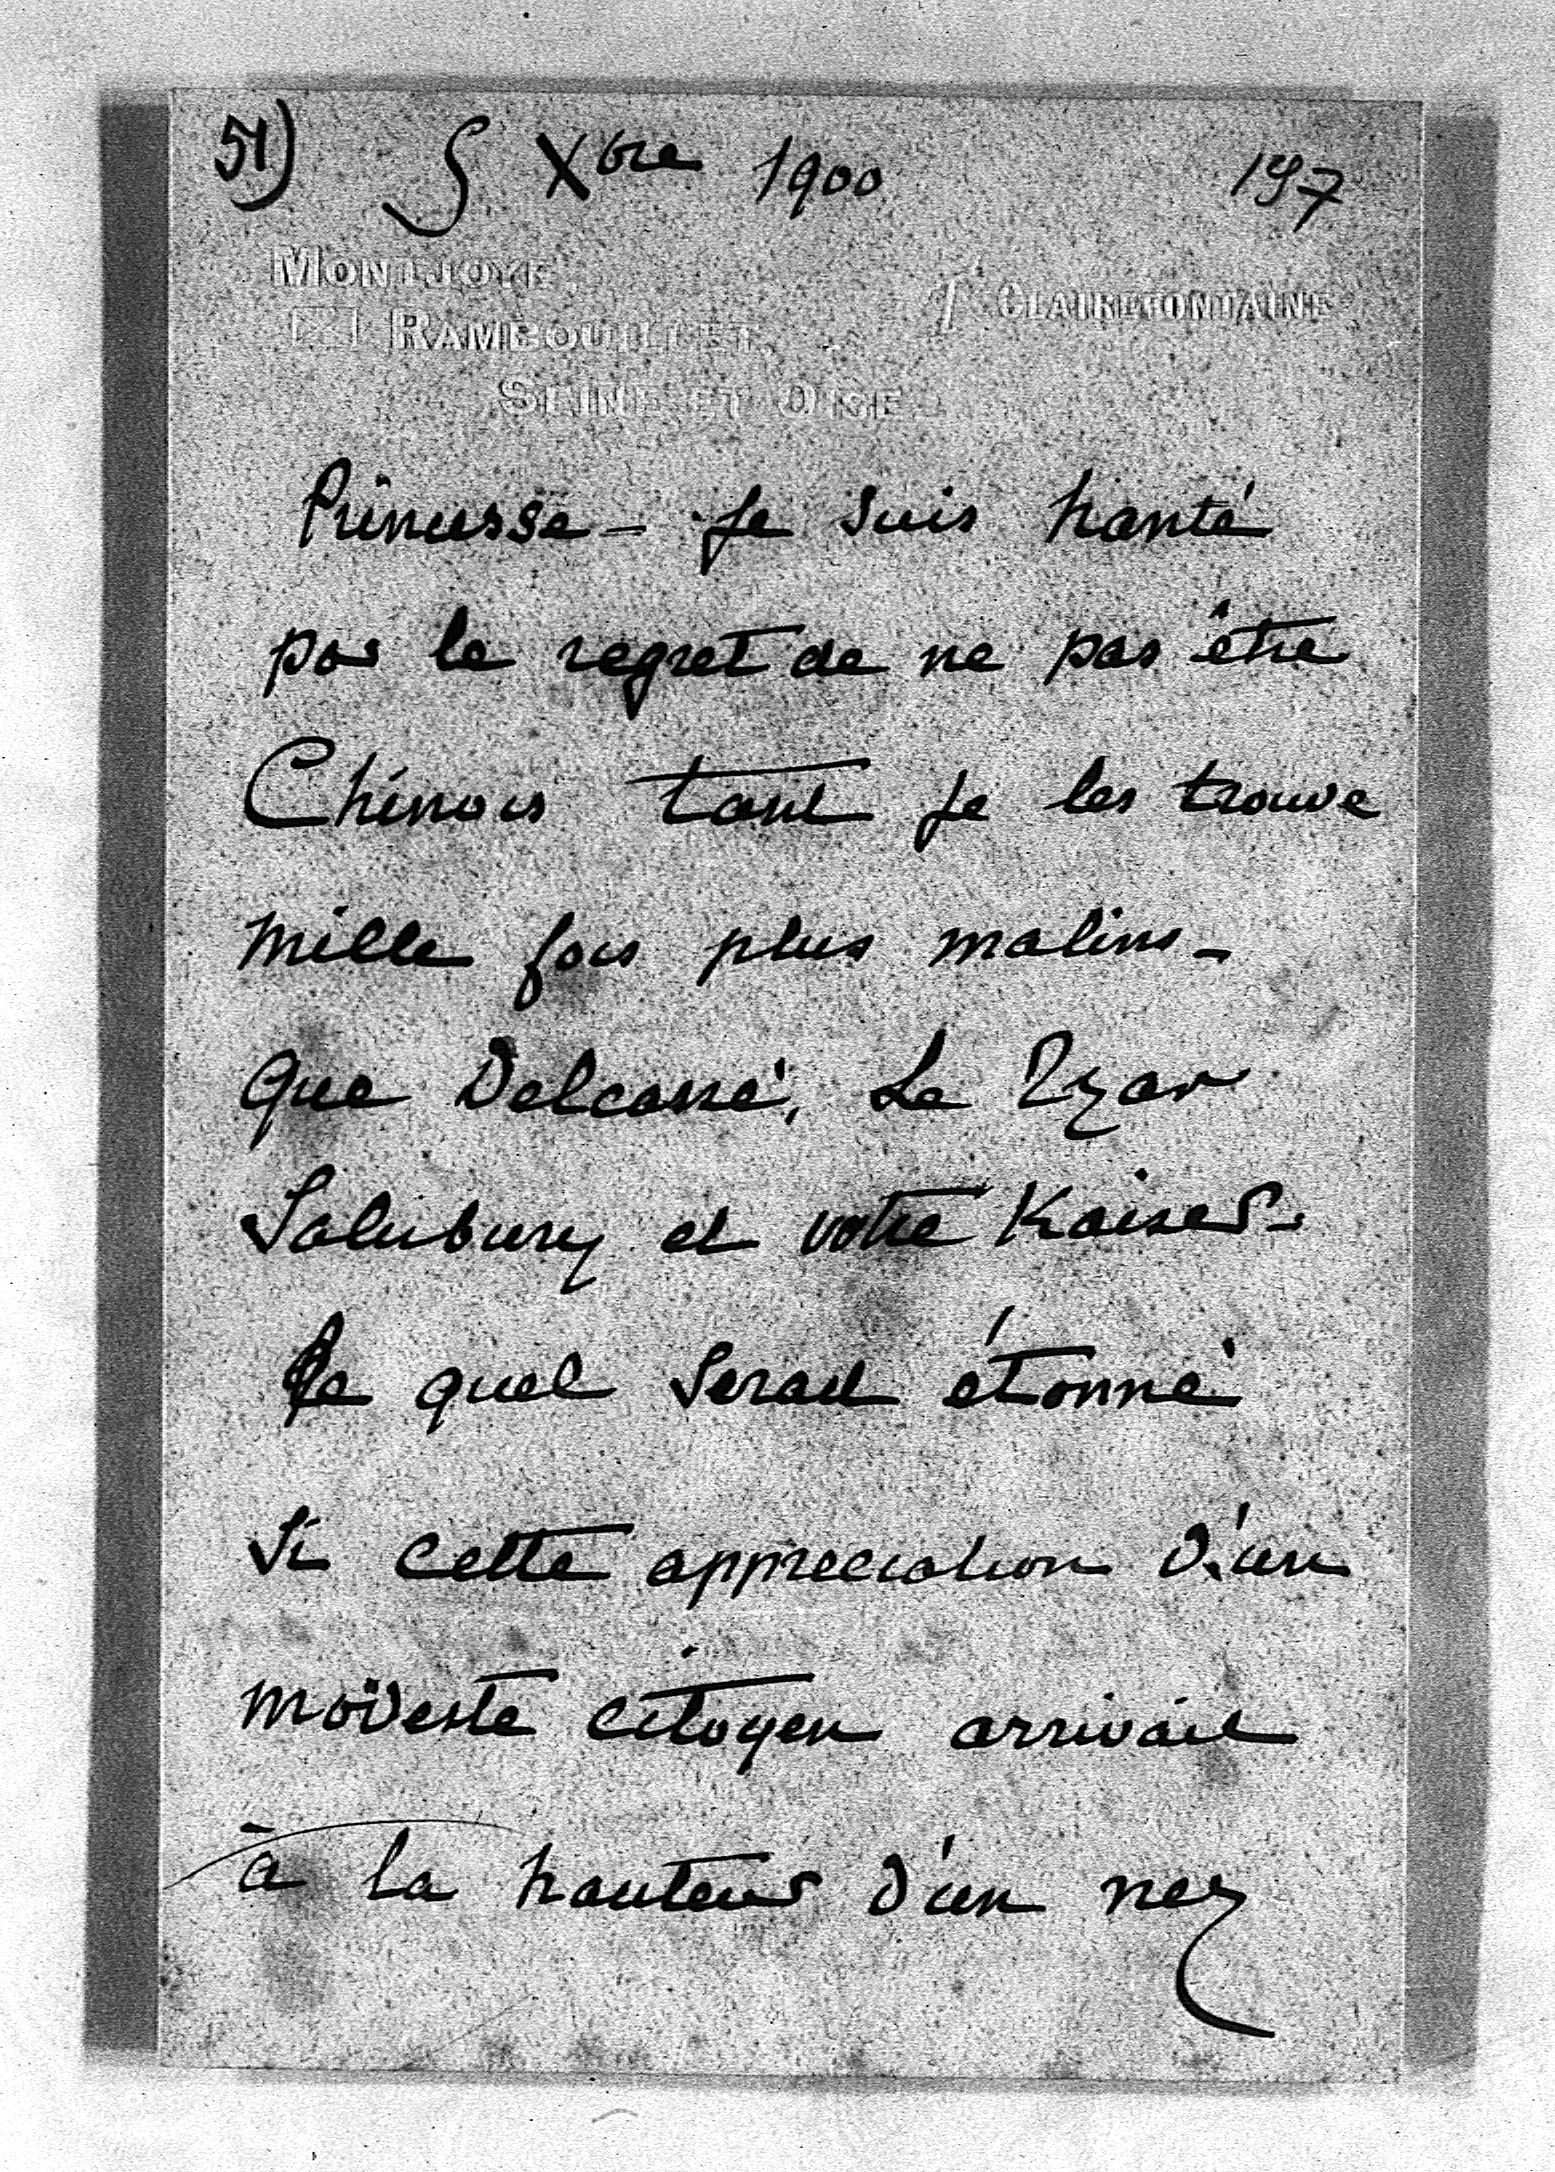 51) 5 Xbre 1900 197
MONTJOYE,
RAMBOUILLET, CLAIREFONTAINE
SEINE ET OISE
Princesse - Je suis hanté
par le regret de ne pas être
Chinois tant je les trouve
mille fois plus malins -
que Delcassé, Le Tzar
Salisbury et votre Kaiser -
Le quel serait étonné
Si cette appreciation d'un
modeste citoyen arrivait
à la hauteur d'un nez